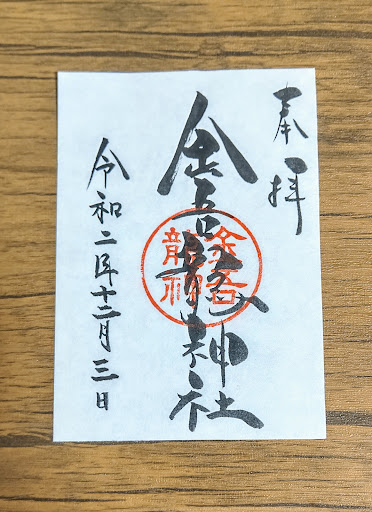 奉拝
金吾龍神社
金吾
龍神
令和二年十二月三日